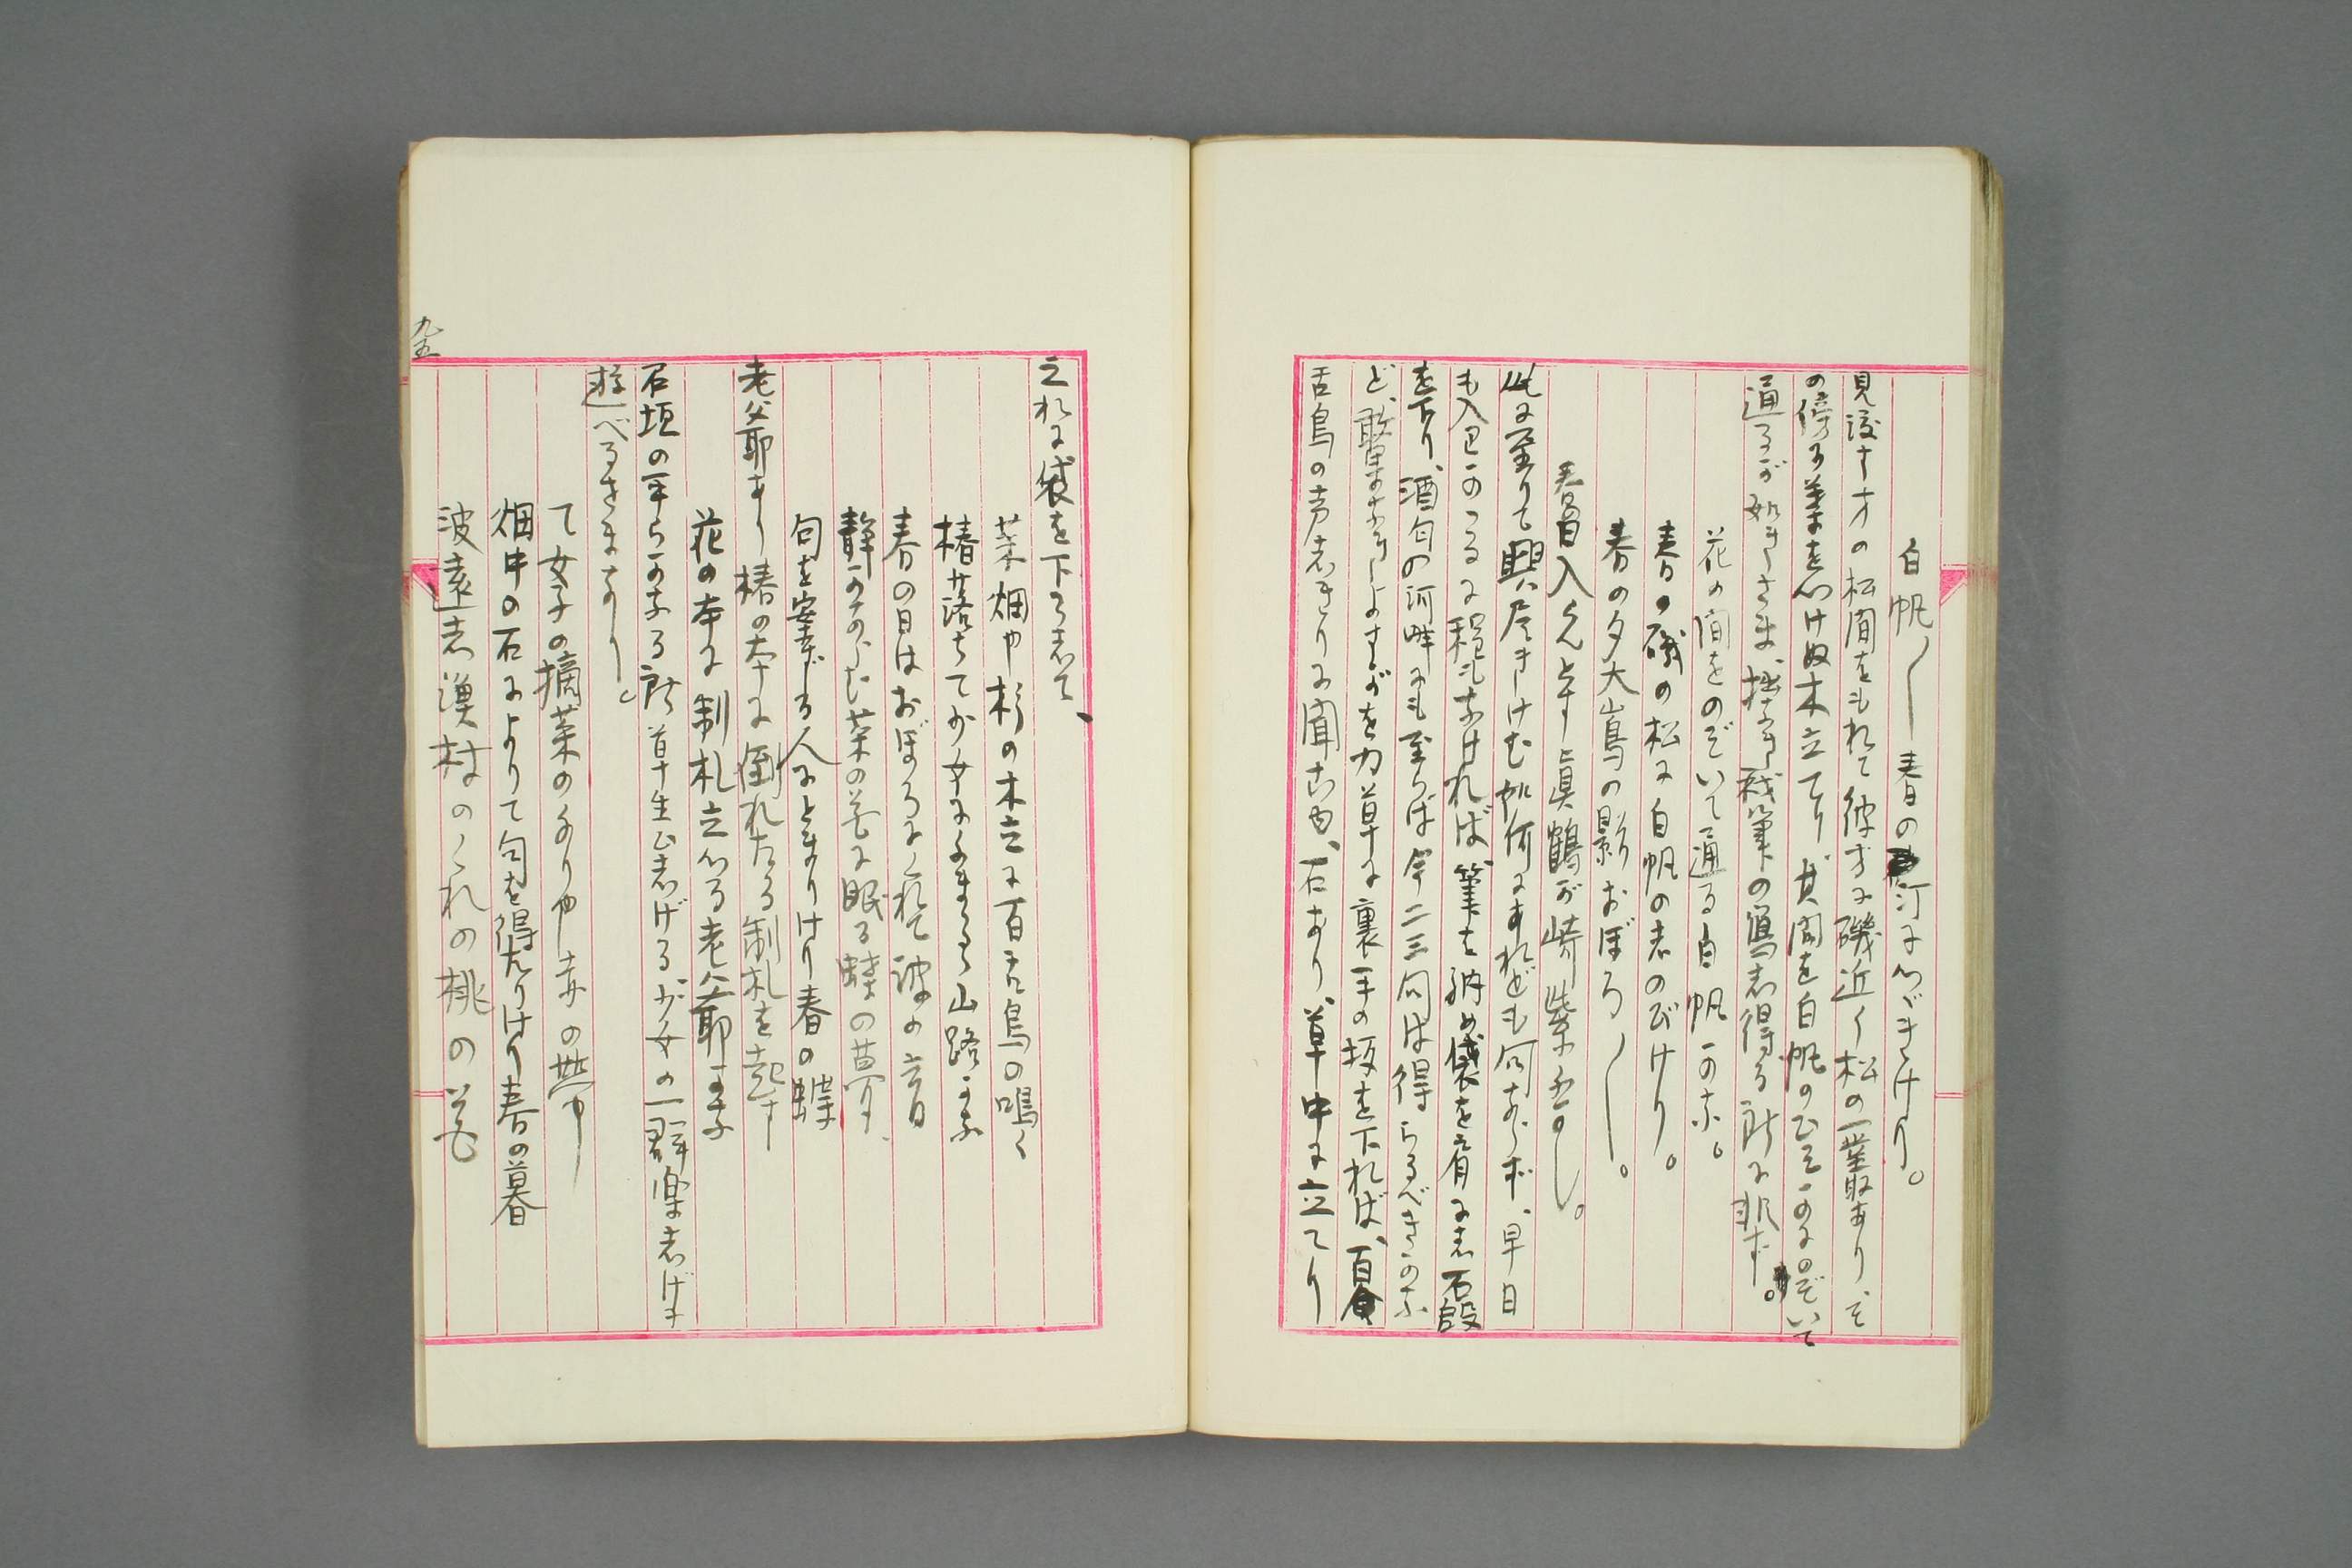 白帆〳〵春の汀につゞきけり。
見渡す方の松間をもれて彼方に磯近く松の一叢あり、そ
の傍に葉をつけぬ木立てり、其間を白帆のひそかにのぞいて
通るが如きさま、拙き我筆の寫し得る所に非ず。
花の間をのぞいて通る白帆かな。
春の磯の松に白帆のしのびけり。
春の夕大島の影おぼろ〳〵。
春日入らんとす眞鶴が崎紫にす。
此に至りて興は尽きけむ如何にすれども句ならず、早日
も入日かゝるに程もなければ筆を納め袋を肩にし石段
を下り、酒匂の河畔にも至らば今二三句は得らるべきかな
ど、敢果なきよすがを力草に裏手の坂を下れば、百
舌鳥の声しきりに聞こゆ、石あり、草中に立てり
之れに袋を下ろして、
菜畑や杉の木立に百舌鳥の鳴く
椿落ちて少女にくまるゝ山路かな
春の日はおぼろにくれて波の音
静かならむ菜の花に眠る蝶の夢
句を案ずる人にとまりけり春の蝶
老爺あり椿の本に倒れたる制札を起す
花の本に制札立つる老爺哉
石垣の平らかなる所草生ひしげる、少女の一群楽しげに
遊べるさまなり。
て女子の摘菜のなりや赤の帯や
畑中の石によりて句を得たりけり春の暮
波遠し漁村のくれの桃の花
九五